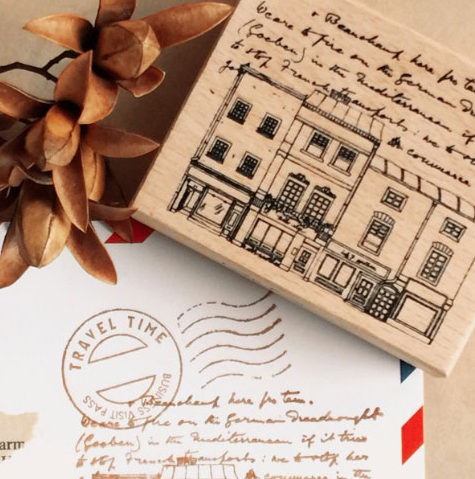 Beauchamp here for te
to fire on the German
(Goeben) in the Mediterranean if
to stop French transports: we to
commence
TRAVEL TIME
BUSINESS VISIT PASS
Beauchamp here for tem.
to fire on the German Dreadnought
(Goeben) in the Mediterranean if it tries
to stop French transports: we to stop her
commence in the
arm